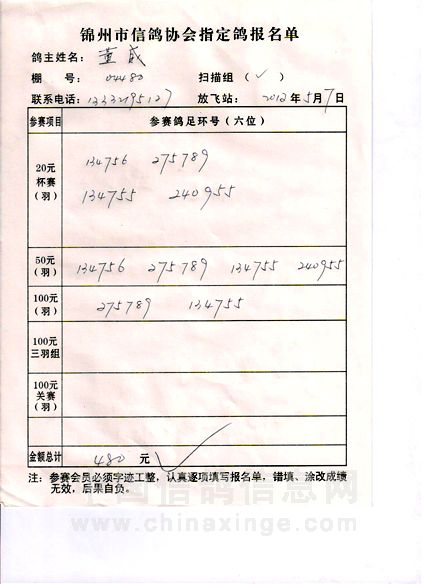 锦州市信鸽协会指定鸽报名单
鸽主姓名: 董威
棚 号: 04480 扫描组 (✓)
联系电话: 13332195127 放飞站: 2012年5月7日
参赛项目 参赛鸽足环号(六位)
20元
杯赛
(羽)
134756 275789
134755 240955
50元
(羽)
134756 275789 134755 240955
100元
(羽)
275789 134755
100元
三羽组
100元
关赛
(羽)
金额总计 480 元
注: 参赛会员必须字迹工整,认真逐项填写报名单,错填、涂改成绩
无效,后果自负。
中国信鸽信息网
www.chinaxinge.com